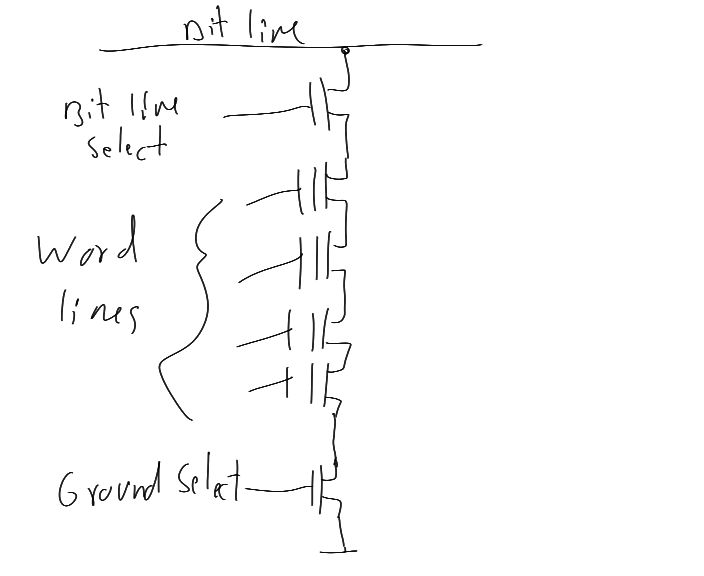 Bit line
Bit line
Select
Word
lines
Ground Select